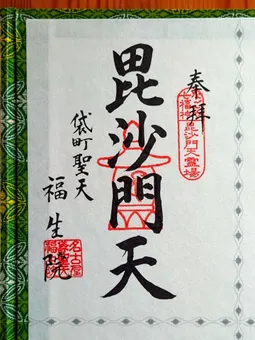 奉拝
毘沙門天霊場
毘沙門天
袋町聖天
福生院
名古屋